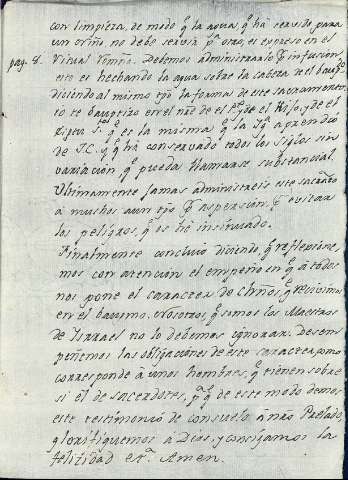 con limpieza, de modo q̃ la agua q̃ há servido para
un oriño no debe servir pª otro; es expreso en el
pag. 8. Ritual Romño. Debemos administrarlo p̃r infusion,
esto es hechando la agua sobre la cabeza de el baupdo
diciendo al mismo tpõ la forma de este sacramento;
io te bauptizo en el nõe de el Pe, y de el Hijo, y de el
Espitu Sto q̃ es la misma q̃ la Yga aprendió
de J.C. y q̃ há conservado todos los siglos sin
variacion q̃ pueda llamarse substancial.
Ultimamente jamas administreis este sacrãto
á muchos aun tpõ p̃r aspersion, p̃r evitar
los peligros, q̃ os há insinuado.
Finalmente concluio diciendo, q̃ reflepione,
mos con atencion el empeño en q̃ á todos
nos pone el caracter de Chnõs, q̃ recivimos
en el bautismo. Nosotros, q̃ somos los Maestros
de Israel no lo debemos ignorar. Desem
peñemos las obligaciones de este caracter, como
corresponde á unos hombres, q̃ tienen sobre
si el de sacerdotes, pª q̃ de este modo demos
este testimonio de consuelo á nro Prelado,
glorifiquemos a Dios, y consigamos la
felizidad etª. Amen.